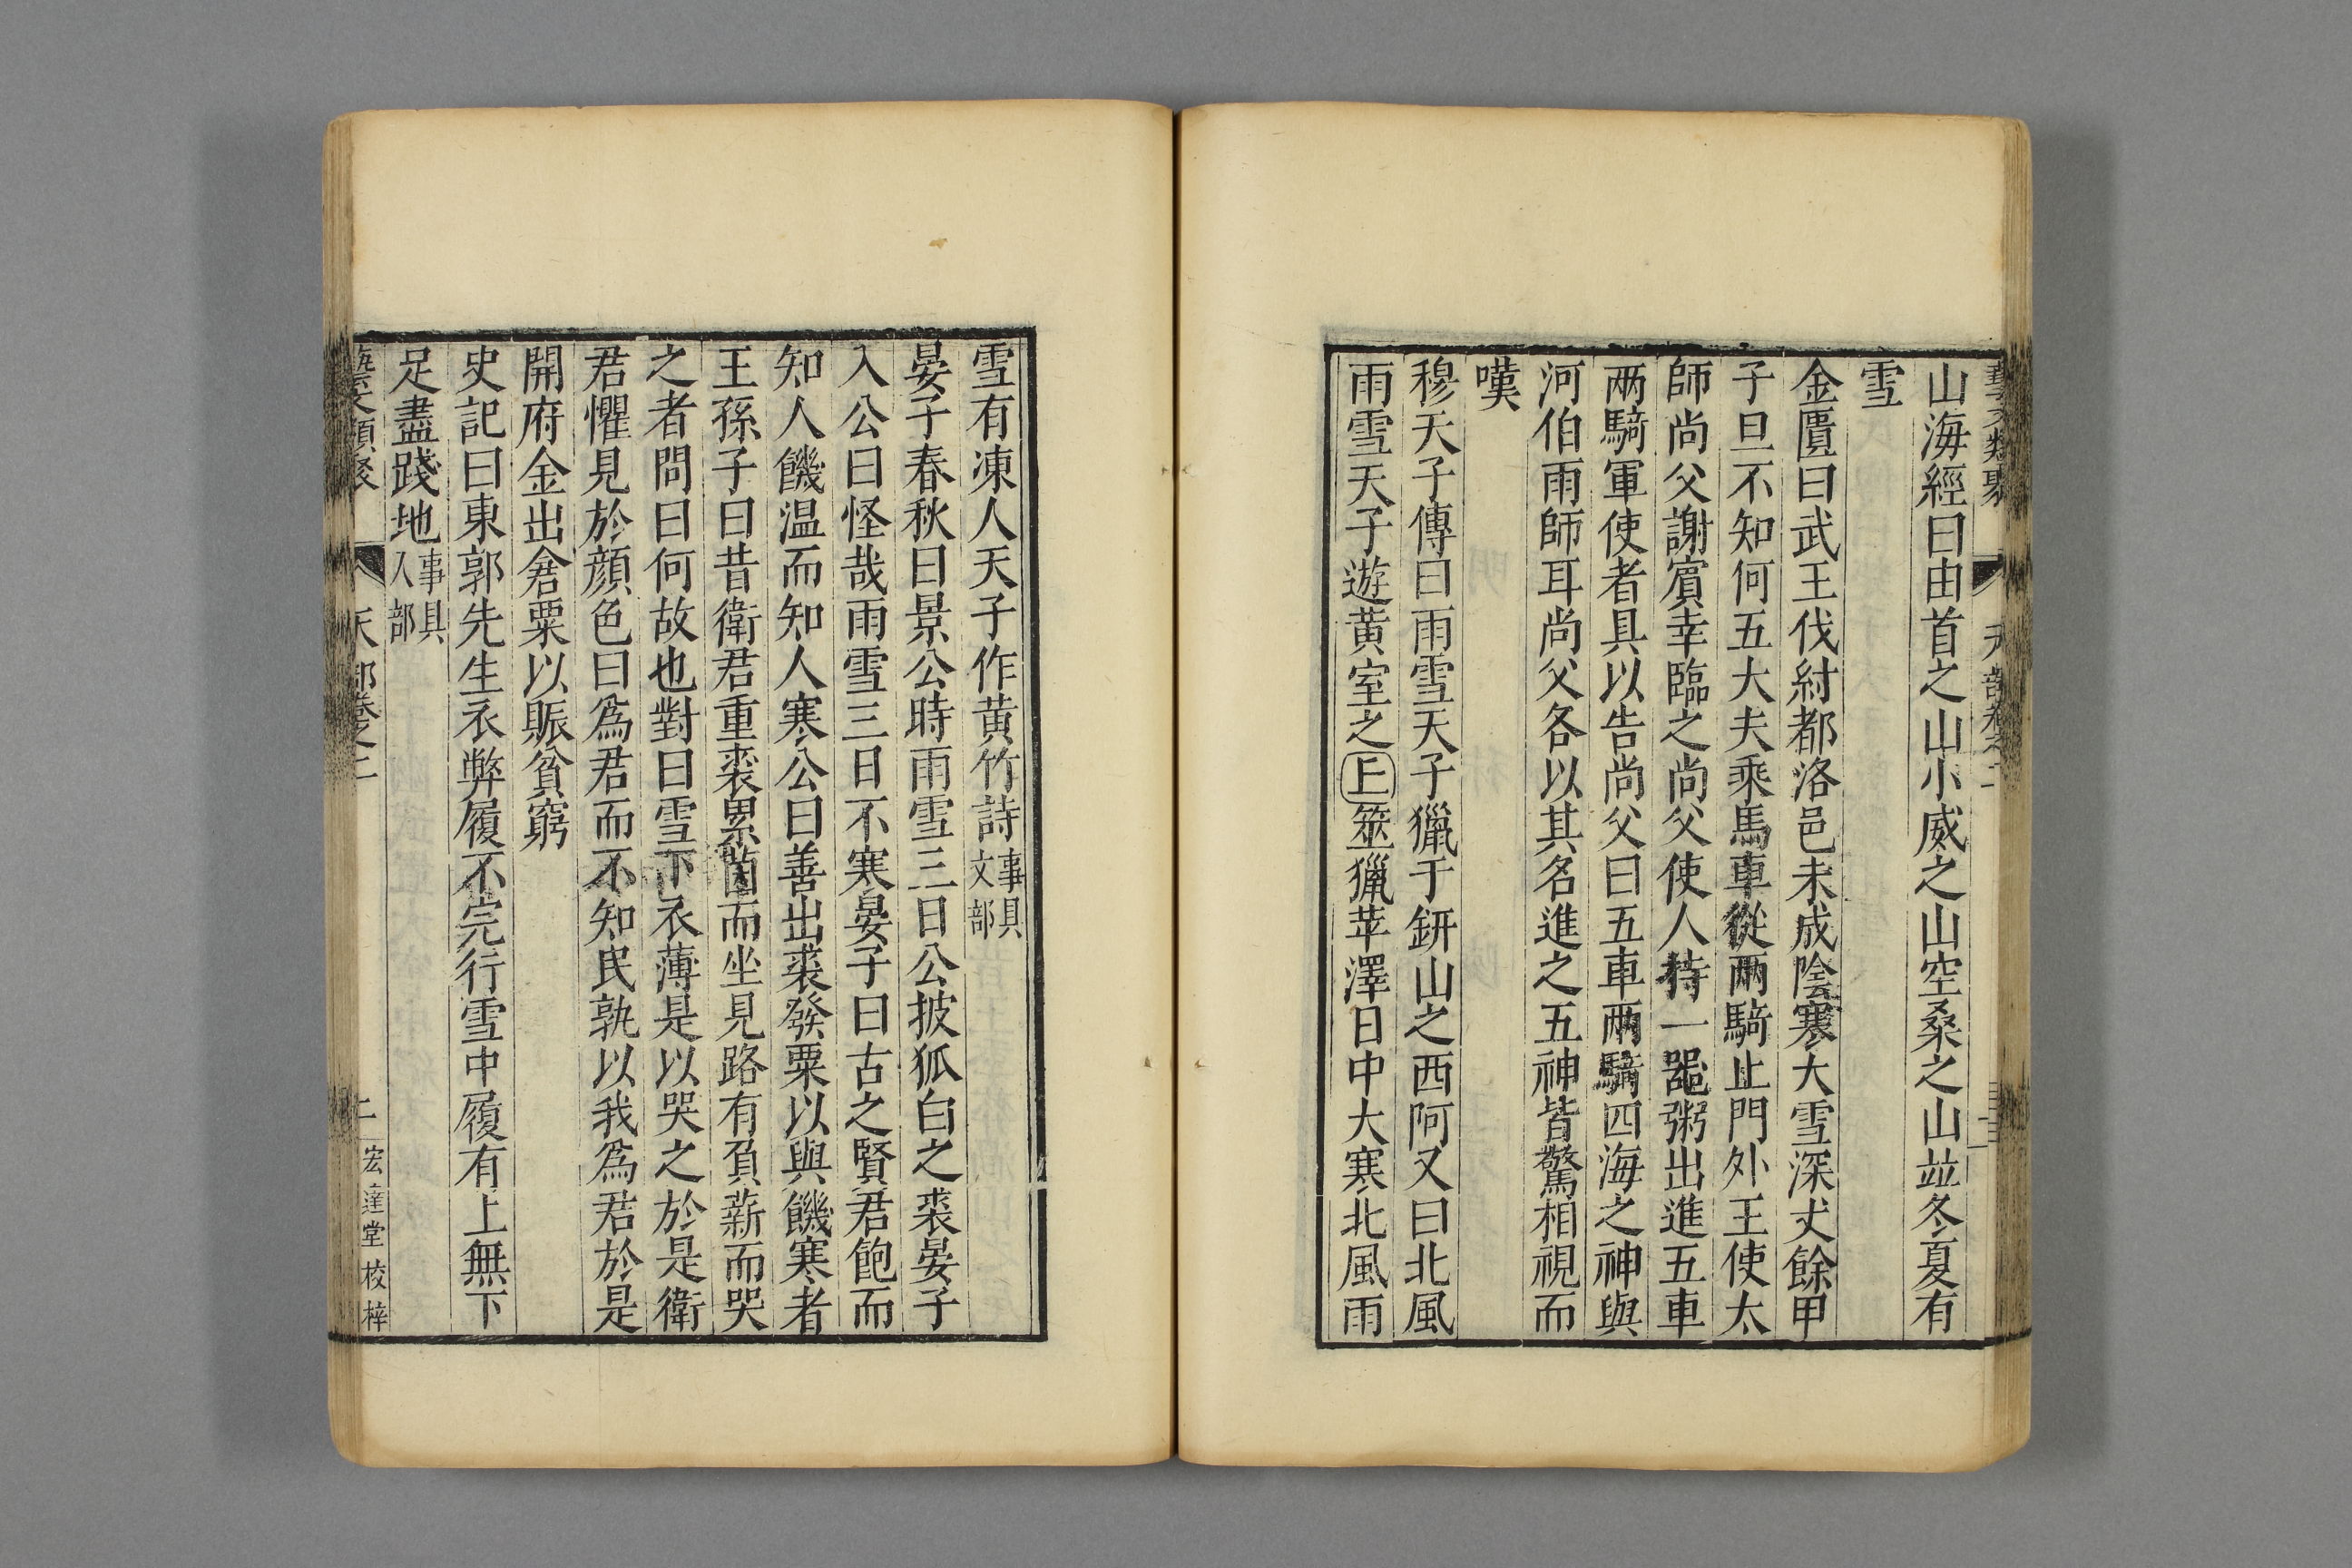 藝文類聚 天部卷之二
山海經曰由首之山小威之山空桑之山竝冬夏有
雪
金匱曰武王伐紂都洛邑未成陰寒大雪深丈餘甲
子旦不知何五大夫乘馬車從兩騎止門外王使太
師尚父謝賓幸臨之尚父使人持一器粥出進五車
兩騎軍使者具以告尚父曰五車兩騎四海之神與
河伯雨師耳尚父各以其名進之五神皆驚相視而
嘆
穆天子傳曰雨雪天子獵于鈃山之西阿又曰北風
雨雪天子遊黃室之上筮獵苹澤日中大寒北風雨
雪有凍人天子作黃竹詩事具文部
晏子春秋曰景公時雨雪三日公披狐白之裘晏子
入公曰怪哉雨雪三日不寒晏子曰古之賢君飽而
知人饑温而知人寒公曰善出裘發粟以與饑寒者
王孫子曰昔衛君重裘累茵而坐見路有負薪而哭
之者問曰何故也對曰雪下衣薄是以哭之於是衛
君懼見於顏色曰爲君而不知民孰以我爲君於是
開府金出倉粟以賑貧窮
史記曰東郭先生衣弊履不完行雪中履有上無下
足盡踐地事具人部
藝文類聚 天部卷之二 二 宏達堂校梓